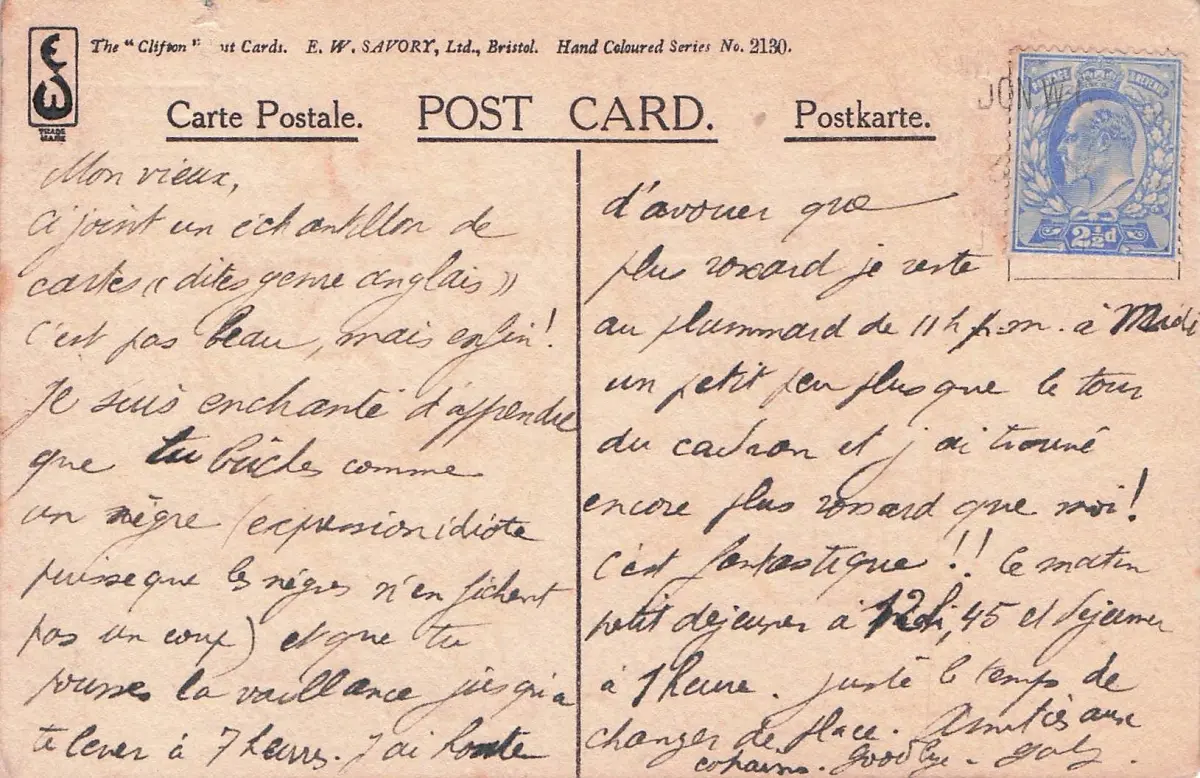 The "Clifton" ut Cards. E. W. SAVORY, Ltd., Bristol. Hand Coloured Series No. 2130.
TRADE MARK
Carte Postale. POST CARD. Postkarte.
DON W
POSTAGE REVENUE
2½d
Mon vieux,
Ci joint un échantillon de
cartes (( dites genre anglais ))
c'est pas beau, mais enfin !
Je suis enchanté d'apprendre
que tu bûches comme
un nègre (expression idiote
puisque les nègres n'en fichent
pas un coup) et que tu
pousses la vaillance jusqu'a
te lever à 7 heures. J'ai honte
d'avouer que
plus rossard je reste
au plummard de 11 h p.m. à Midi
un petit peu plus que le tour
du cadran et j'ai trouvé
encore plus rossard que moi !
C'est fantastique !! Ce matin
petit déjeuner à 12h,45 et déjeuner
à 1 heure. juste le temps de
changer de place. Amitiés aux
copains. Goodbye.